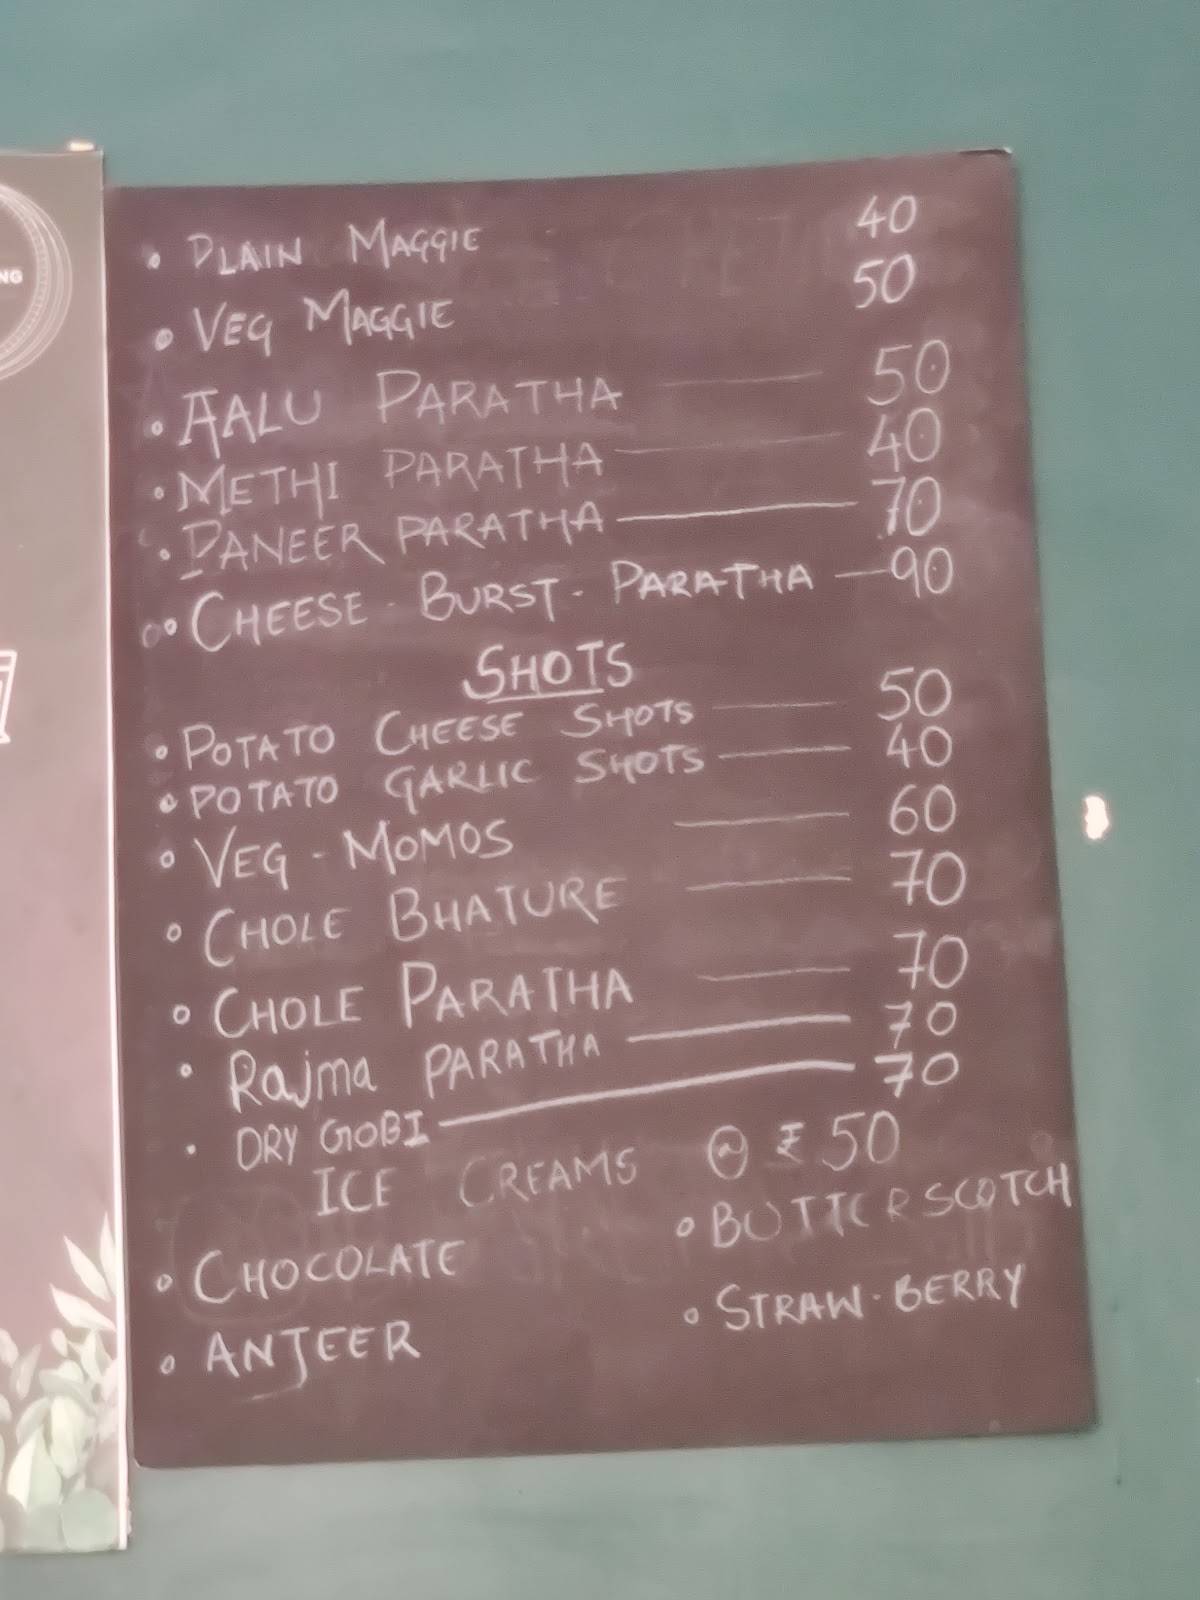 NG
• PLAIN MAGGIE 40
• VEG MAGGIE 50
• AALU PARATHA — 50
• METHI PARATHA — 40
• PANEER PARATHA — 70
• CHEESE - BURST - PARATHA — 90
SHOTS
• POTATO CHEESE SHOTS — 50
• POTATO GARLIC SHOTS — 40
• VEG - MOMOS — 60
• CHOLE BHATURE — 70
• CHOLE PARATHA — 70
• Rajma PARATHA — 70
• DRY GOBI — 70
ICE CREAMS @ ₹ 50
• CHOCOLATE • BUTTERSCOTCH
• ANJEER • STRAW-BERRY